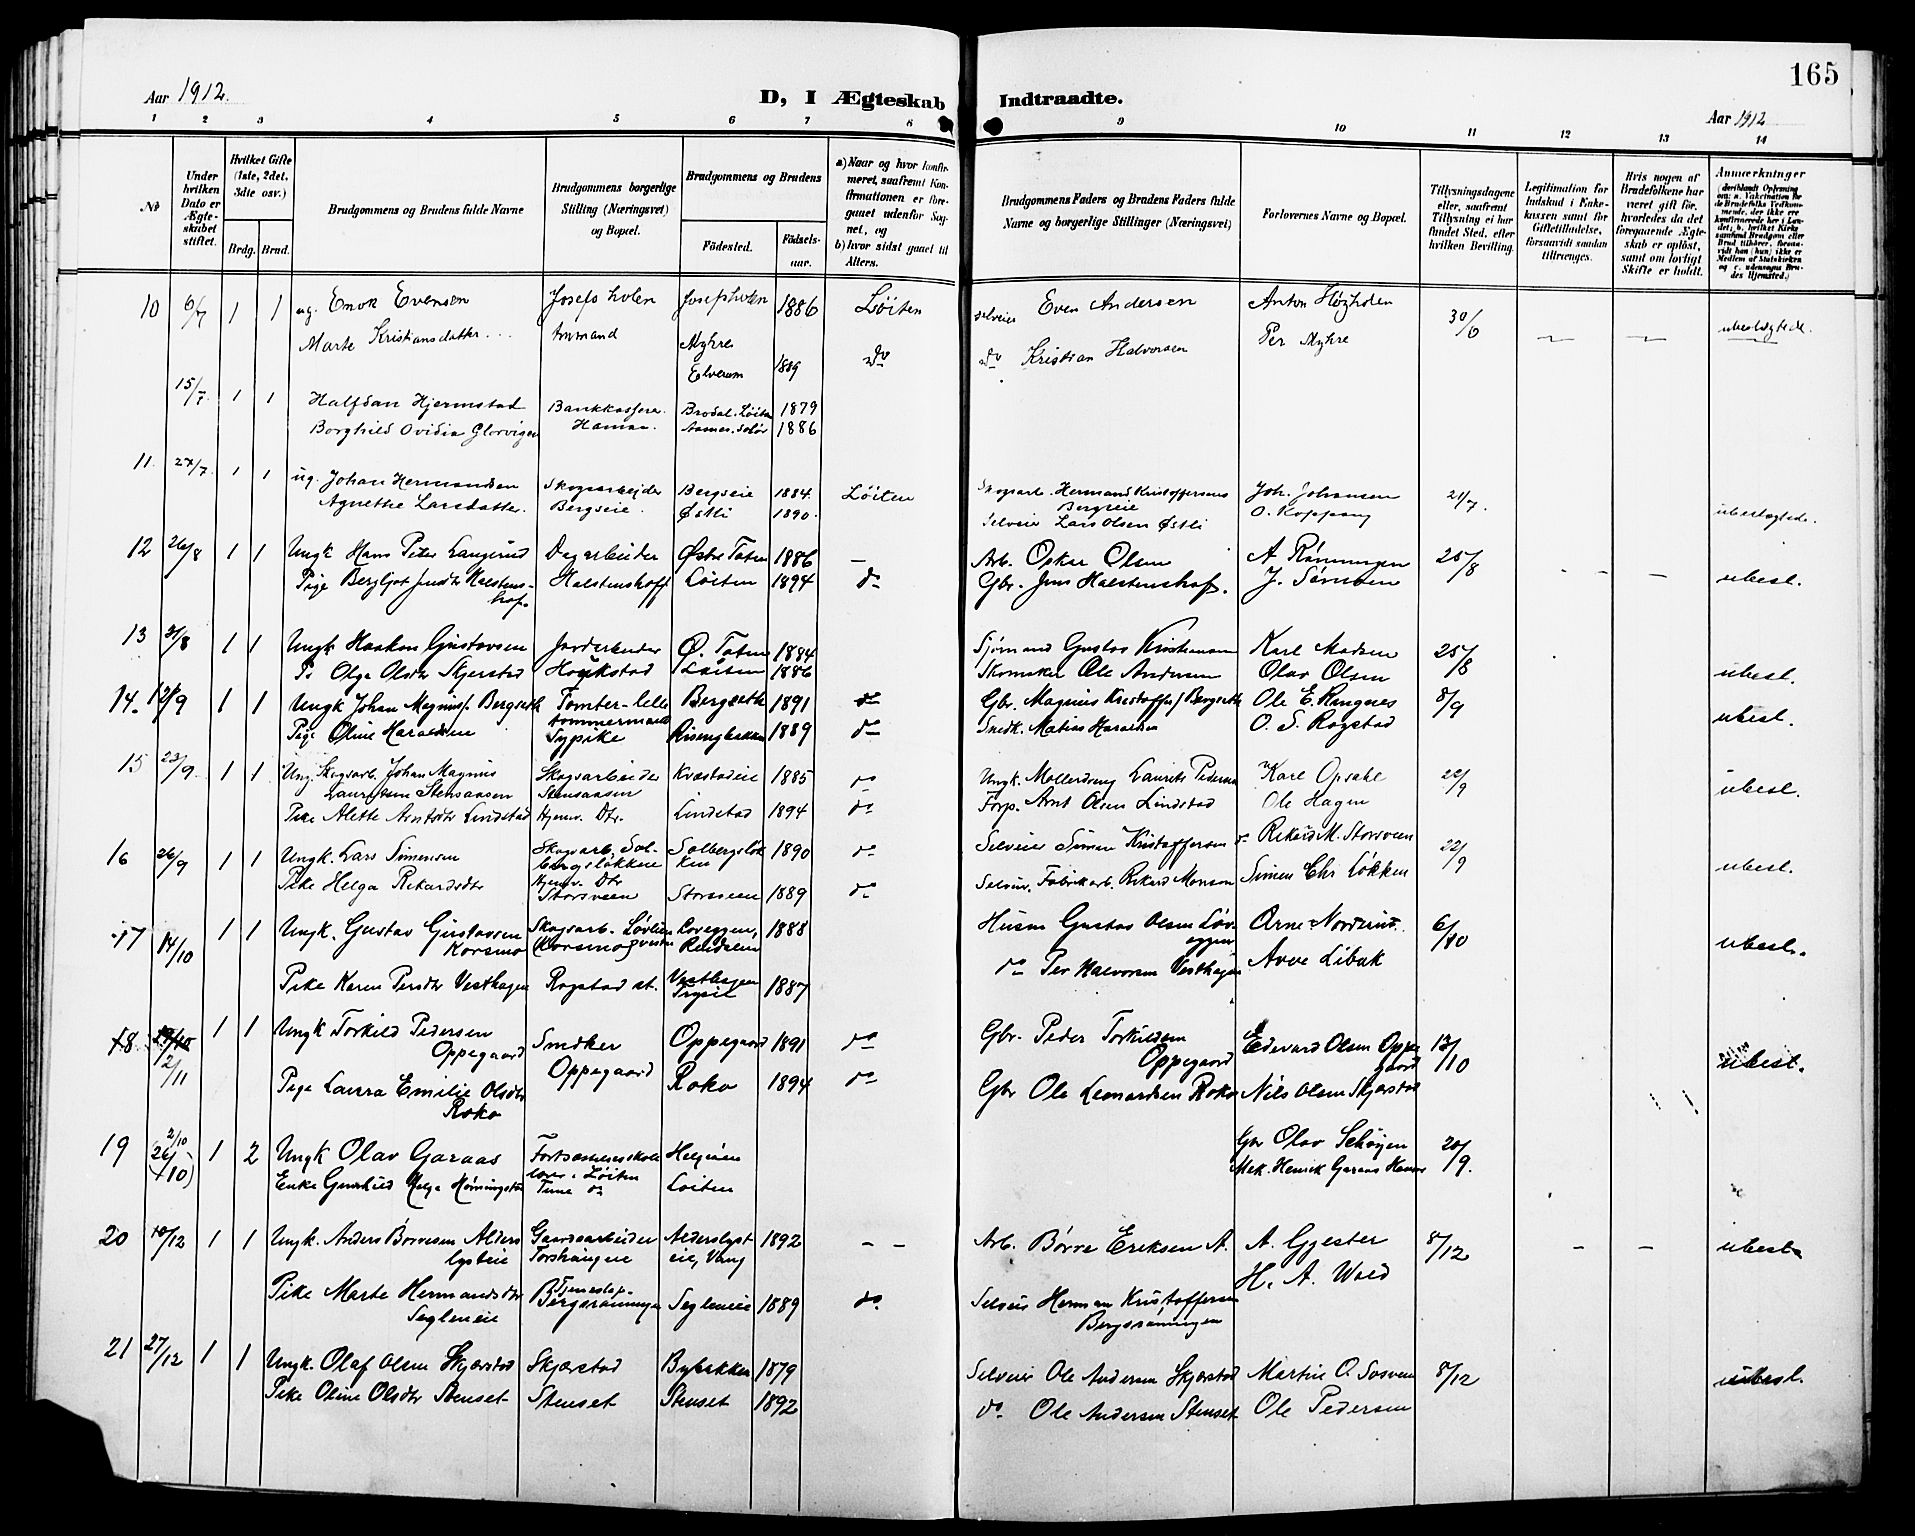 165
Aar 1912.
D, I Ægteskab Indtraadte.
Aar 1912
1 2 3 4 5 6 7 8 9 10 11 12 13 14
No
Under hvilken Dato er Ægteskabet stiftet.
Hvilket Gifte (1ste, 2det, 3die osv.)
Brdg. Brud.
Brudgommens og Brudens fulde Navne
Brudgommens borgerlige Stilling (Næringsvei) og Bopæl.
Brudgommens og Brudens
Födested. Födselsaar.
a) Naar og hvor konfirmeret, saafremt Konfirmationen er foregaaet udenfor Sognet, og
b) hvor sidst gaaet til Alters.
Brudgommens Faders og Brudens Faders fulde Navne og borgerlige Stillinger (Næringsvei)
Forlovernes Navne og Bopæl.
Tillysningsdagene eller, saafremt Tillysning ei har fundet Sted, efter hvilken Bevilling.
Legitimation for Indskud i Enkekassen samt for Giftetilladelse, forsaavidt saadan tiltrænges.
Hvis nogen af Brudefolkene har været gift för, hvorledes da det foregaaende Ægteskab er oplöst, samt om lovligt Skifte er holdt.
Anmærkninger
10 6/7 1 1 ug. Enok Evensen Josefsholen Josephholen 1886 Löiten selveier Even Andersen Anton Höghden 30/6 — — ubeslægtede.
Marte Kristiansdatter Ammand Myhre Elverum 1889 do do Kristian Halvorsen Per Myhre
15/7 1 1 Halfdan Hjermstad Bankkasserer Brodal. Löiten 1879
Borghild Ovidia Glorvigen Hamar. Aasnes. Solör 1886
11. 27/7 1 1 ug. Johan Hermandsen Skogsarbejder Bergseie 1884. Löiten Skogsarb. Hermand Kristoffersens Joh. Johansen 21/7.
Agnethe Larsdatter Bergseie. Østli 1890. Bergseie
Selveier Lars Olsen Østli O. Koppang ubeslægtede.
12 26/8 1 1 Ungk Hans Peter Langerud Dagarbeider Østre Toten 1886 — Arb. Oskar Olsen A. Rönningen 25/8 - - — ubesl.
Pige Bergljot Jensdtr Halstens- Halstenshoff Löiten 1894 do Gbr. Jens Halstenshof. J. Sörnsen
hof.
13 31/8 1 1 Ungk Haakon Gustavsen Jordarbeider Ø. Toten 1884 Sjömand Gustav Kristiansen Karl Madsen 25/8
P. Olga Olsdtr Skjerstad Högkstad Löiten 1886 Skomaker Ole Andersen Olav Olsen ubesl.
14. 12/9 1 1 Ungk Johan Magnus Bergseth Tomter-lille Bergseth 1891 do Gbr. Magnus Kristoffers Bergseth Ole E. Rangnes 8/9
tömmermand
Pige Oline Haraldsen Sypike Risengbakken 1889 do Snedk. Matias Haraldsen O. S. Rogstad ubesl.
15 23/9 1 1 Ung. Skogsarb. Johan Magnus Skogsarbeider Kvæstadeie 1885 do Ungk. Mollerdreng Laurits Pedersen Karl Opsahl 22/9
Lauritsen Stensaasen Stensaasen
Pike Alette Arntsdtr Lindstad Hjemv. Dtr. Lindstad 1894 do Forp. Arnt Olsen Lindstad Ole Hagen ubesl.
16 26/9 1 1 Ungk. Lars Simensen Skogarb. Sol- Solbergslök- 1890 do Selveier Simen Kristoffersen Rikard M. Storsveen 22/9
bergslökken ken
Pike Helga Rikardsdtr Hjemv. Dtr Storsveen Storsveen 1889 do Selveier. Fabrikarb. Rikard Monsen Simen Chr Lökken ubesl.
17 14/10 1 1 Ungk. Gustav Gustavsen Skogsarb. Lövlien Loveggen, 1888 Husm Gustav Olsen Löv- Arne Nordlund 6/10
Korsmo (Korsmo) Reidseie eggen
Pike Karen Persdtr Vesthagen Rogstad st. Vesthagen Trysil 1887 do Per Halvorsen Vesthagen Arve Libak ubesl.
18 12/11 1 1 Ungk Torkild Pedersen Snedker Oppegaard 1891 do Gbr. Peder Torkildsen Edevard Olsen Oppe- 13/10
Oppegaard Oppegaard Oppegaard gaard ubesl.
Pige Laura Emilie Olsdtr Roko 1894 do Gbr Ole Leonardsen Roko Nils Olsen Skjærstad
Roko
19 2/10 (26/10) 1 2 Ungk Olav Garaas Fortsættelsesskole- Helgöen Gbr Olav Schöyen 20/9.
lærer i Löiten Mek. Henrik Garaas Hamar
Enke Gunhild Helga Hömingstad Tune do Löiten
20 10/12 1 1 Ungk. Anders Börresen Alders- Gaardsarbeider Alderslyst- 1892 — — Arb. Börre Eriksen A. A. Gjester 8/12 — — ubesl.
lysteie Torshaugeie eie, Vang H. A. Wold
Pike Marte Hermandsdtr Tjenestep. Seglereie 1889 do. Selveier Herman Kristoffersen
Seglereie Bergsrönningen Bergsrönningen
21 27/12 1 1 Ungk. Olaf Olsen Skjærstad Skjærstad Bybakken 1879 Selveier Ole Andersen Skjærstad Martin O. Sosveen 8/12 ubesl.
Pike Oline Olsdtr Stenset Stenset Stenset 1892 do Ole Andersen Stenset Ole Pedersen